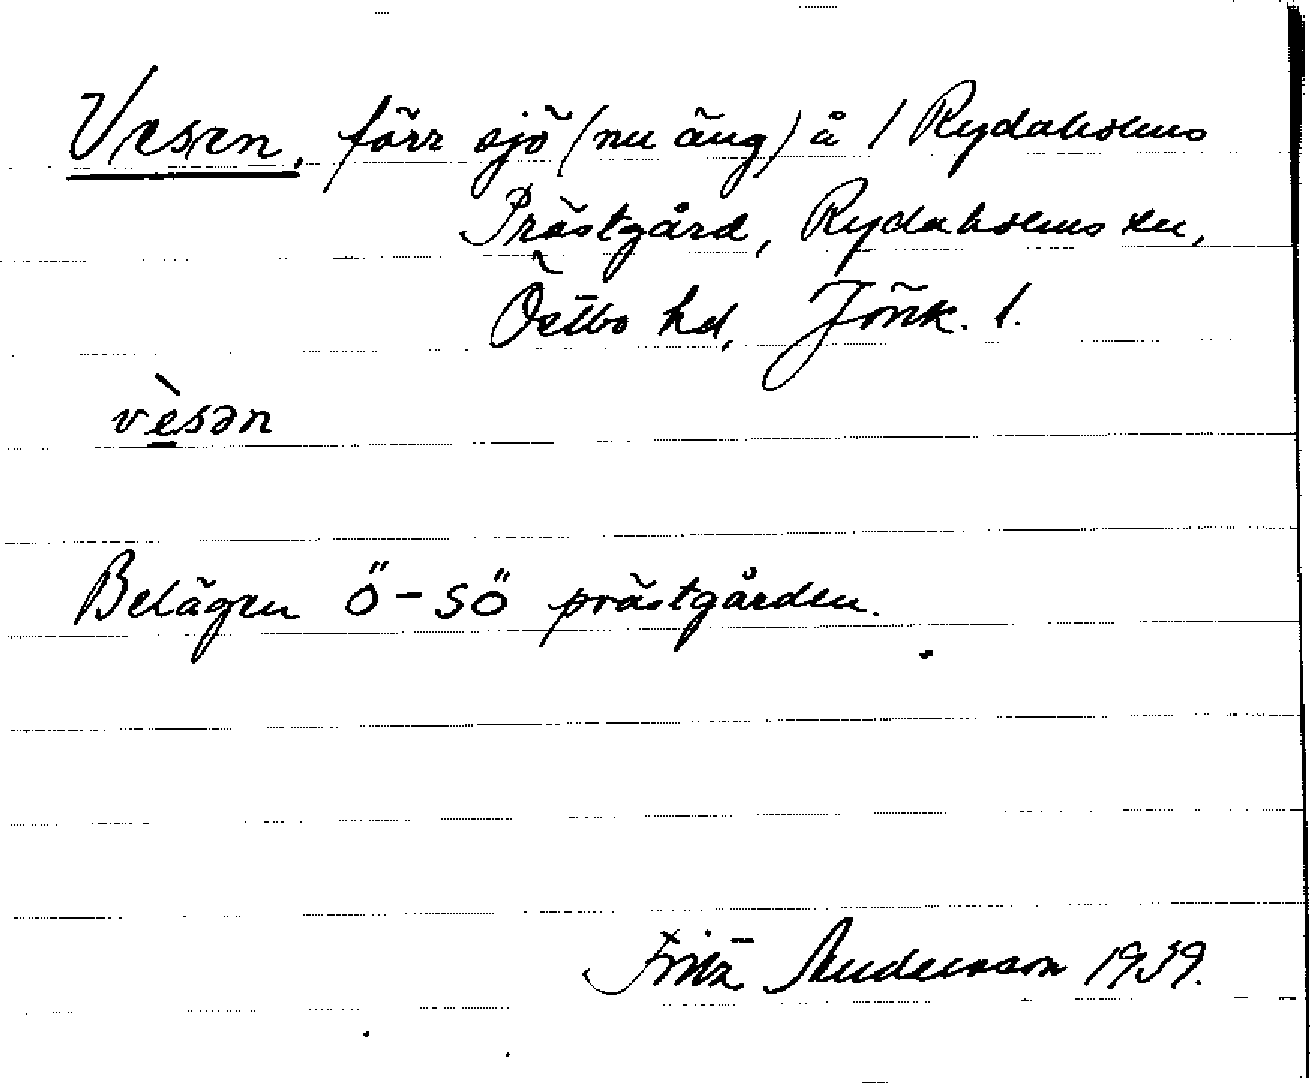 Vesen, förr sjö (nu äng) å / Rydaholms
Prästgård, Rydaholms sn,
Östbo hd, Jönk. l.
vèsən
Belägen Ö-SÖ prästgården.
Fritz Andersson 1939.